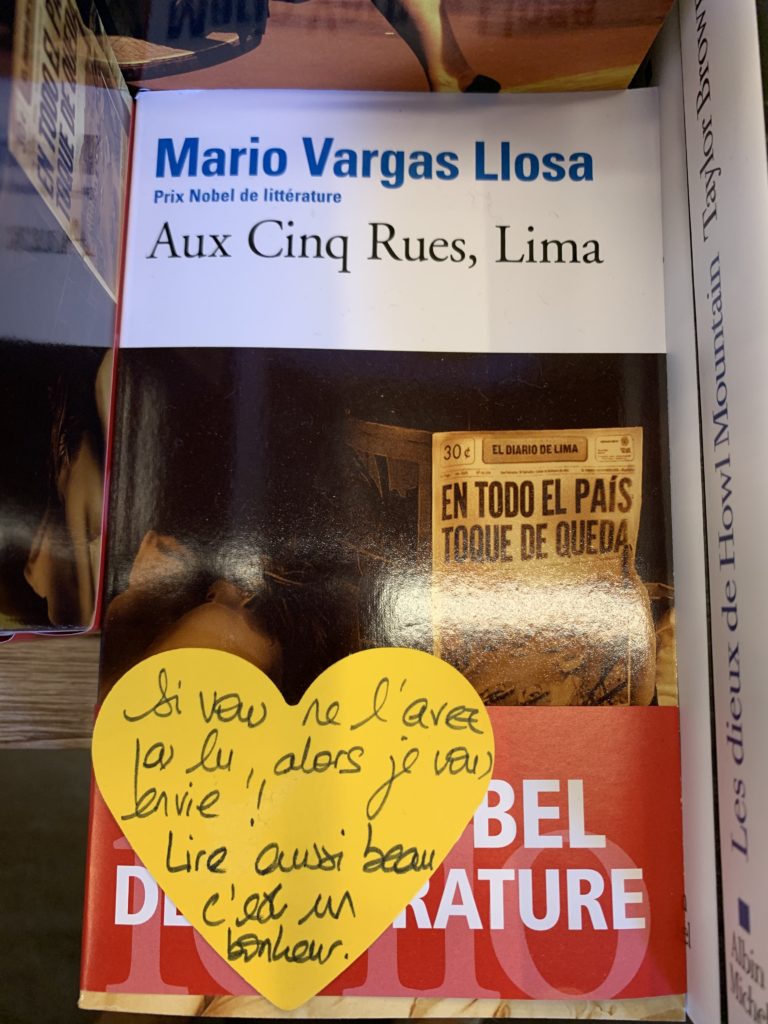 Mario Vargas Llosa
Prix Nobel de littérature
Aux Cinq Rues, Lima
30 ¢
EL DIARIO DE LIMA
EN TODO EL PAÍS
TOQUE DE QUEDA
Si vous ne l'avez
pas lu, alors je vous
envie !
Lire aussi beau
c'est un
bonheur.
BEL
DE RATURE
folio
Les dieux de Howl Mountain Taylor Brown
Albin
Michel
EN TODO EL
TOQUE DE